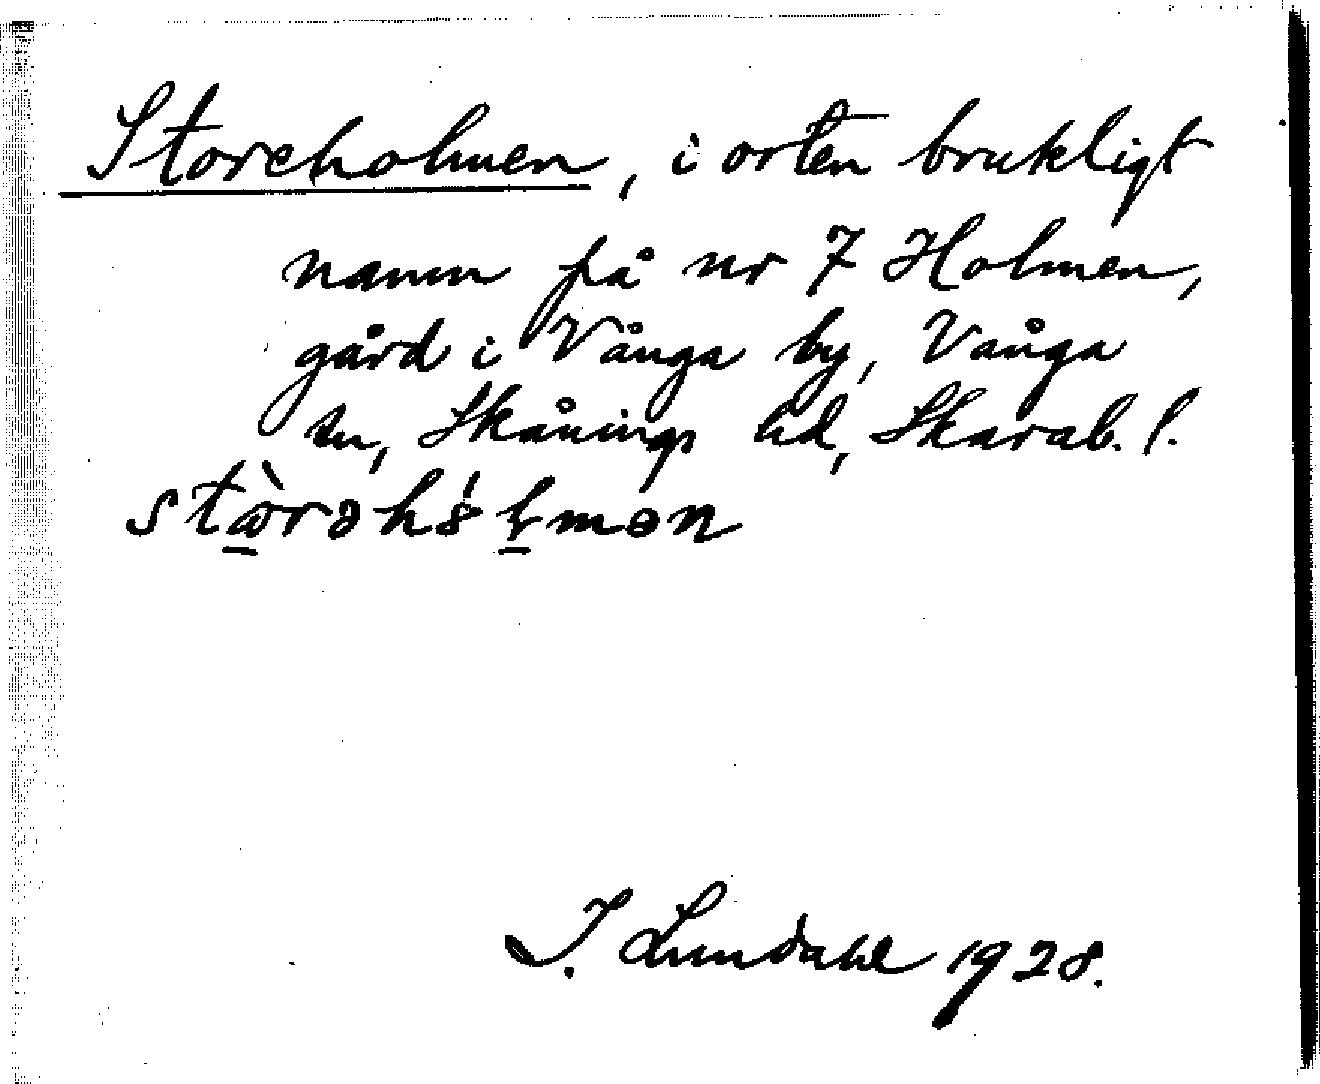 Storeholmen, i orten brukligt
namn på nr 7 Holmen,
gård i Vånga by, Vånga
sn, Skånings hd, Skarab. l.
J. Lundahl 1928.